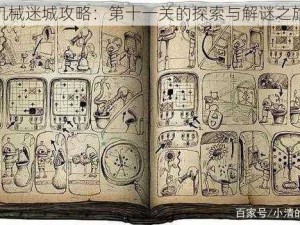 机械迷城攻略：第十一关的探索与解谜之
百家号/小清的